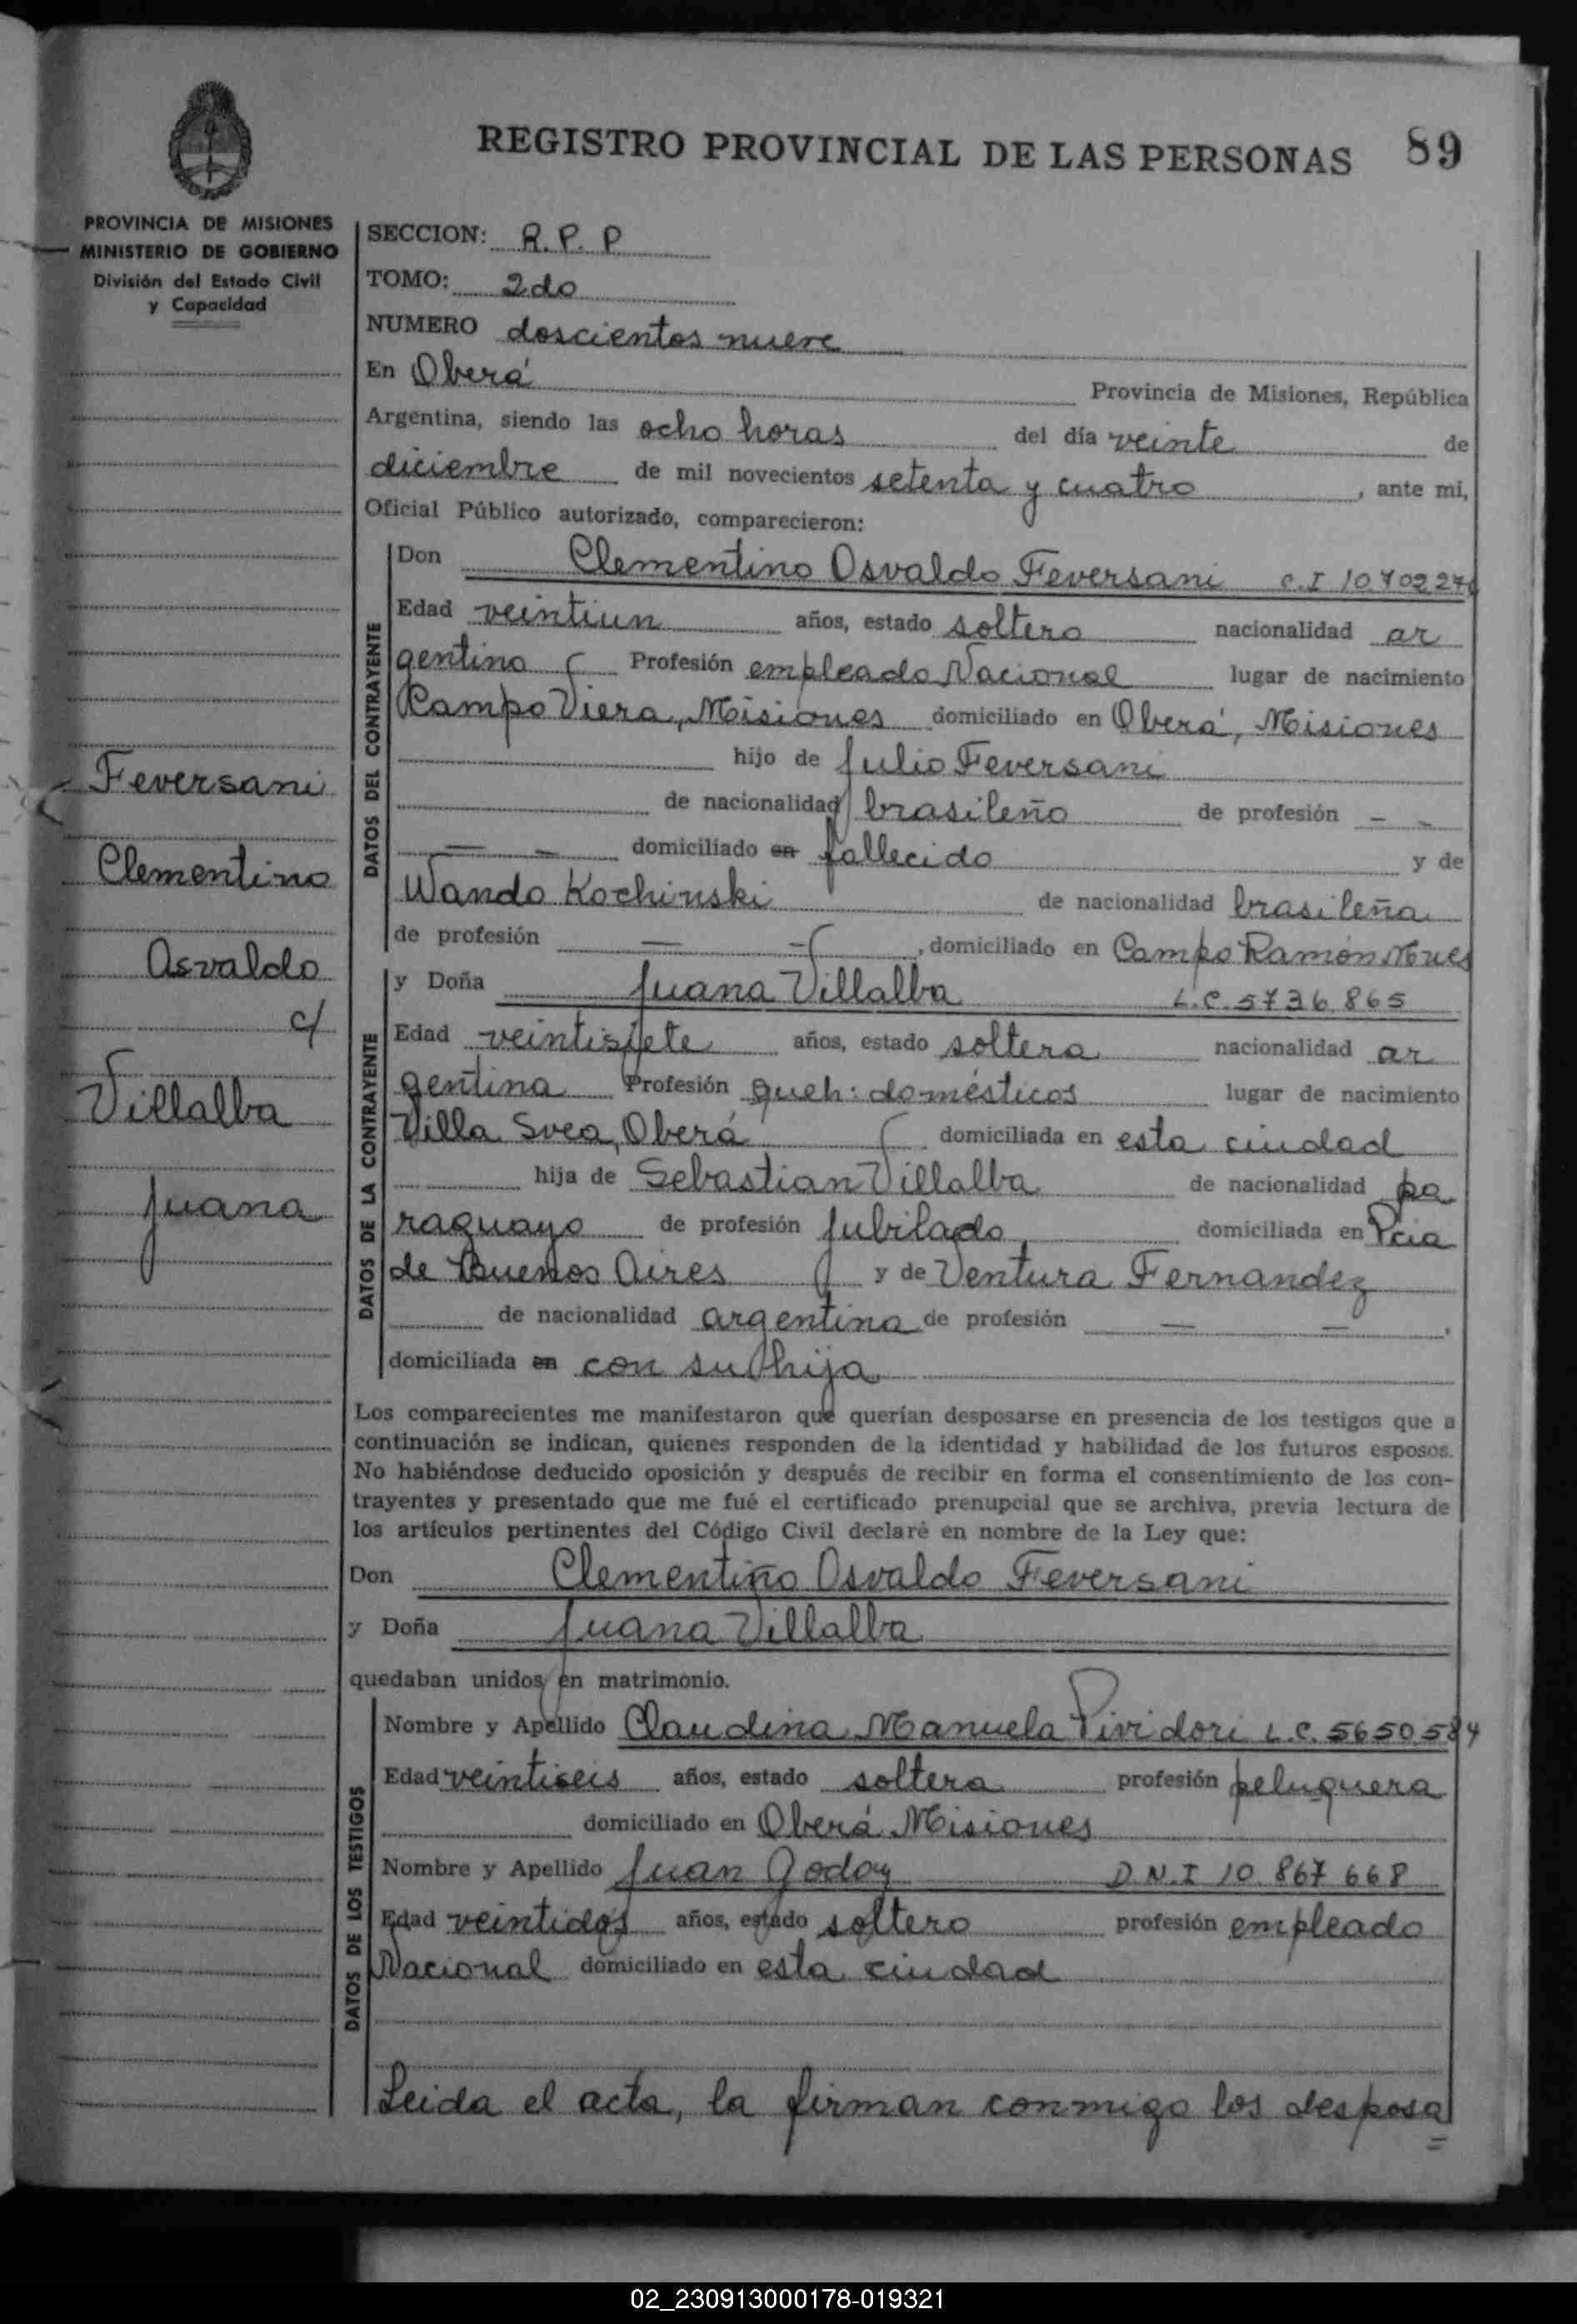 REGISTRO PROVINCIAL DE LAS PERSONAS 89
PROVINCIA DE MISIONES
MINISTERIO DE GOBIERNO
División del Estado Civil
y Capacidad
SECCION: R. P. P
TOMO: 2do
NUMERO doscientos nueve
En Oberá Provincia de Misiones, República
Argentina, siendo las ocho horas del día veinte de
diciembre de mil novecientos setenta y cuatro, ante mi,
Oficial Público autorizado, comparecieron:
DATOS DEL CONTRAYENTE
Don Clementino Osvaldo Feversani C.I 10.702.276
Edad veintiun años, estado soltero nacionalidad ar
gentino Profesión empleado Nacional lugar de nacimiento
Campo Viera, Misiones domiciliado en Oberá, Misiones
hijo de Julio Feversani
de nacionalidad brasileño de profesión – –
– – domiciliado en fallecido y de
Wanda Kochinski de nacionalidad brasileña
de profesión – –, domiciliado en Campo Ramón Mnes
DATOS DE LA CONTRAYENTE
y Doña Juana Villalba L.C. 5736.865
Edad veintisiete años, estado soltera nacionalidad ar
gentina Profesión queh: domésticos lugar de nacimiento
Villa Svea, Oberá domiciliada en esta ciudad
hija de Sebastian Villalba de nacionalidad pa
raguayo de profesión Jubilado, domiciliada en Pcia
de Buenos Aires y de Ventura Fernandez
de nacionalidad argentina de profesión – –,
domiciliada en con su hija
Feversani
Clementino
Osvaldo
c/
Villalba
Juana
Los comparecientes me manifestaron que querían desposarse en presencia de los testigos que a
continuación se indican, quienes responden de la identidad y habilidad de los futuros esposos.
No habiéndose deducido oposición y después de recibir en forma el consentimiento de los con-
trayentes y presentado que me fué el certificado prenupcial que se archiva, previa lectura de
los artículos pertinentes del Código Civil declaré en nombre de la Ley que:
Don Clementino Osvaldo Feversani
y Doña Juana Villalba
quedaban unidos en matrimonio.
DATOS DE LOS TESTIGOS
Nombre y Apellido Claudina Manuela Pividori L.C. 5650.584
Edad veintiseis años, estado soltera profesión peluquera
domiciliado en Oberá Misiones
Nombre y Apellido Juan Godoy D.N.I 10.867 668
Edad veintidos años, estado soltero profesión empleado
Nacional domiciliado en esta ciudad
Leida el acta, la firman conmigo los desposa
02_230913000178-019321